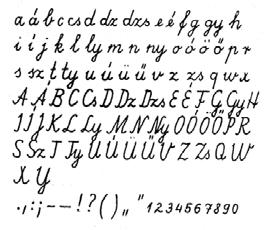 a á b c cs d dz dzs e é f g gy h
i í j k l ly m n ny o ó ö ő p r
s sz t ty u ú ü ű v z zs q w x
A Á B C Cs D Dz Dzs E É F G Gy H
I Í J K L Ly M N Ny O Ó Ö Ő P R
S Sz T Ty U Ú Ü Ű V Z Zs Q W
X Y
. , : ; – — ! ? ( ) „ " 1 2 3 4 5 6 7 8 9 0